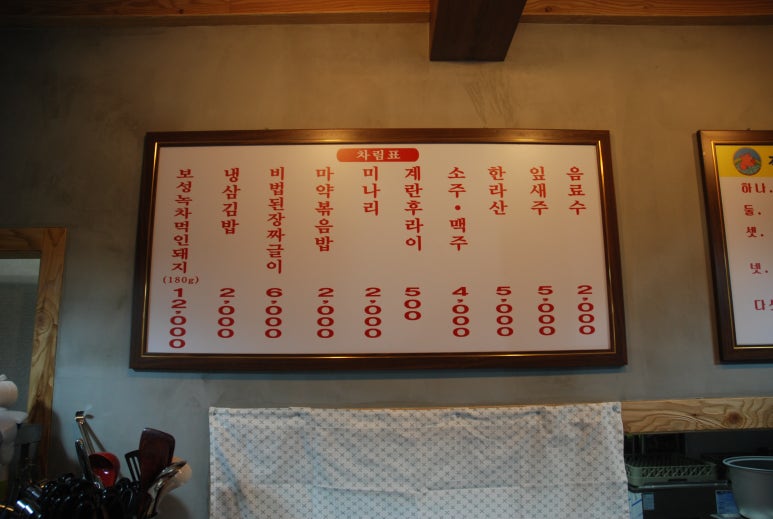 차림표
보성녹차먹인돼지(180g) 12,000
냉삼김밥 2,000
비법된장짜글이 6,000
마약볶음밥 2,000
미나리 2,000
계란후라이 500
소주·맥주 4,000
한라산 5,000
잎새주 5,000
음료수 2,000
하나.
둘.
셋.
넷.